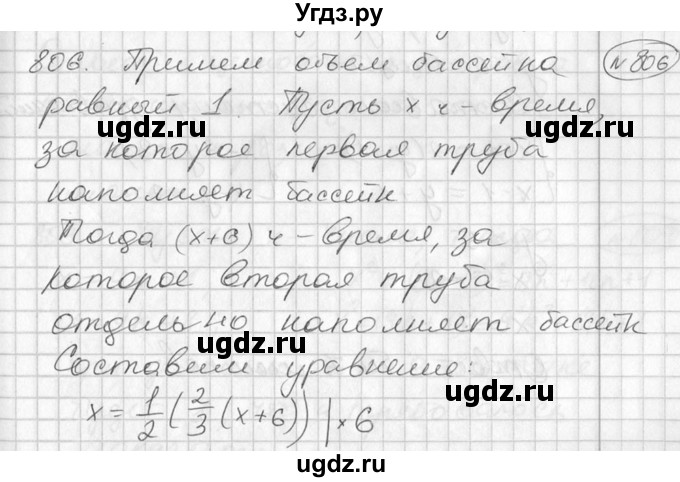 Угдз.ру
806. Примем объем бассейна № 806
равный 1. Пусть x ч – время,
ugdz.ru ugdz.ru
за которое первая труба
наполняет бассейн
Тогда (x+6) ч – время, за
которое вторая труба
отдельно наполняет бассейн
ugdz.ru ugdz.ru
Составим уравнение:
x = 1/2 (2/3 (x+6)) | × 6
ugdz.ru ugdz.ru
ugdz.ru